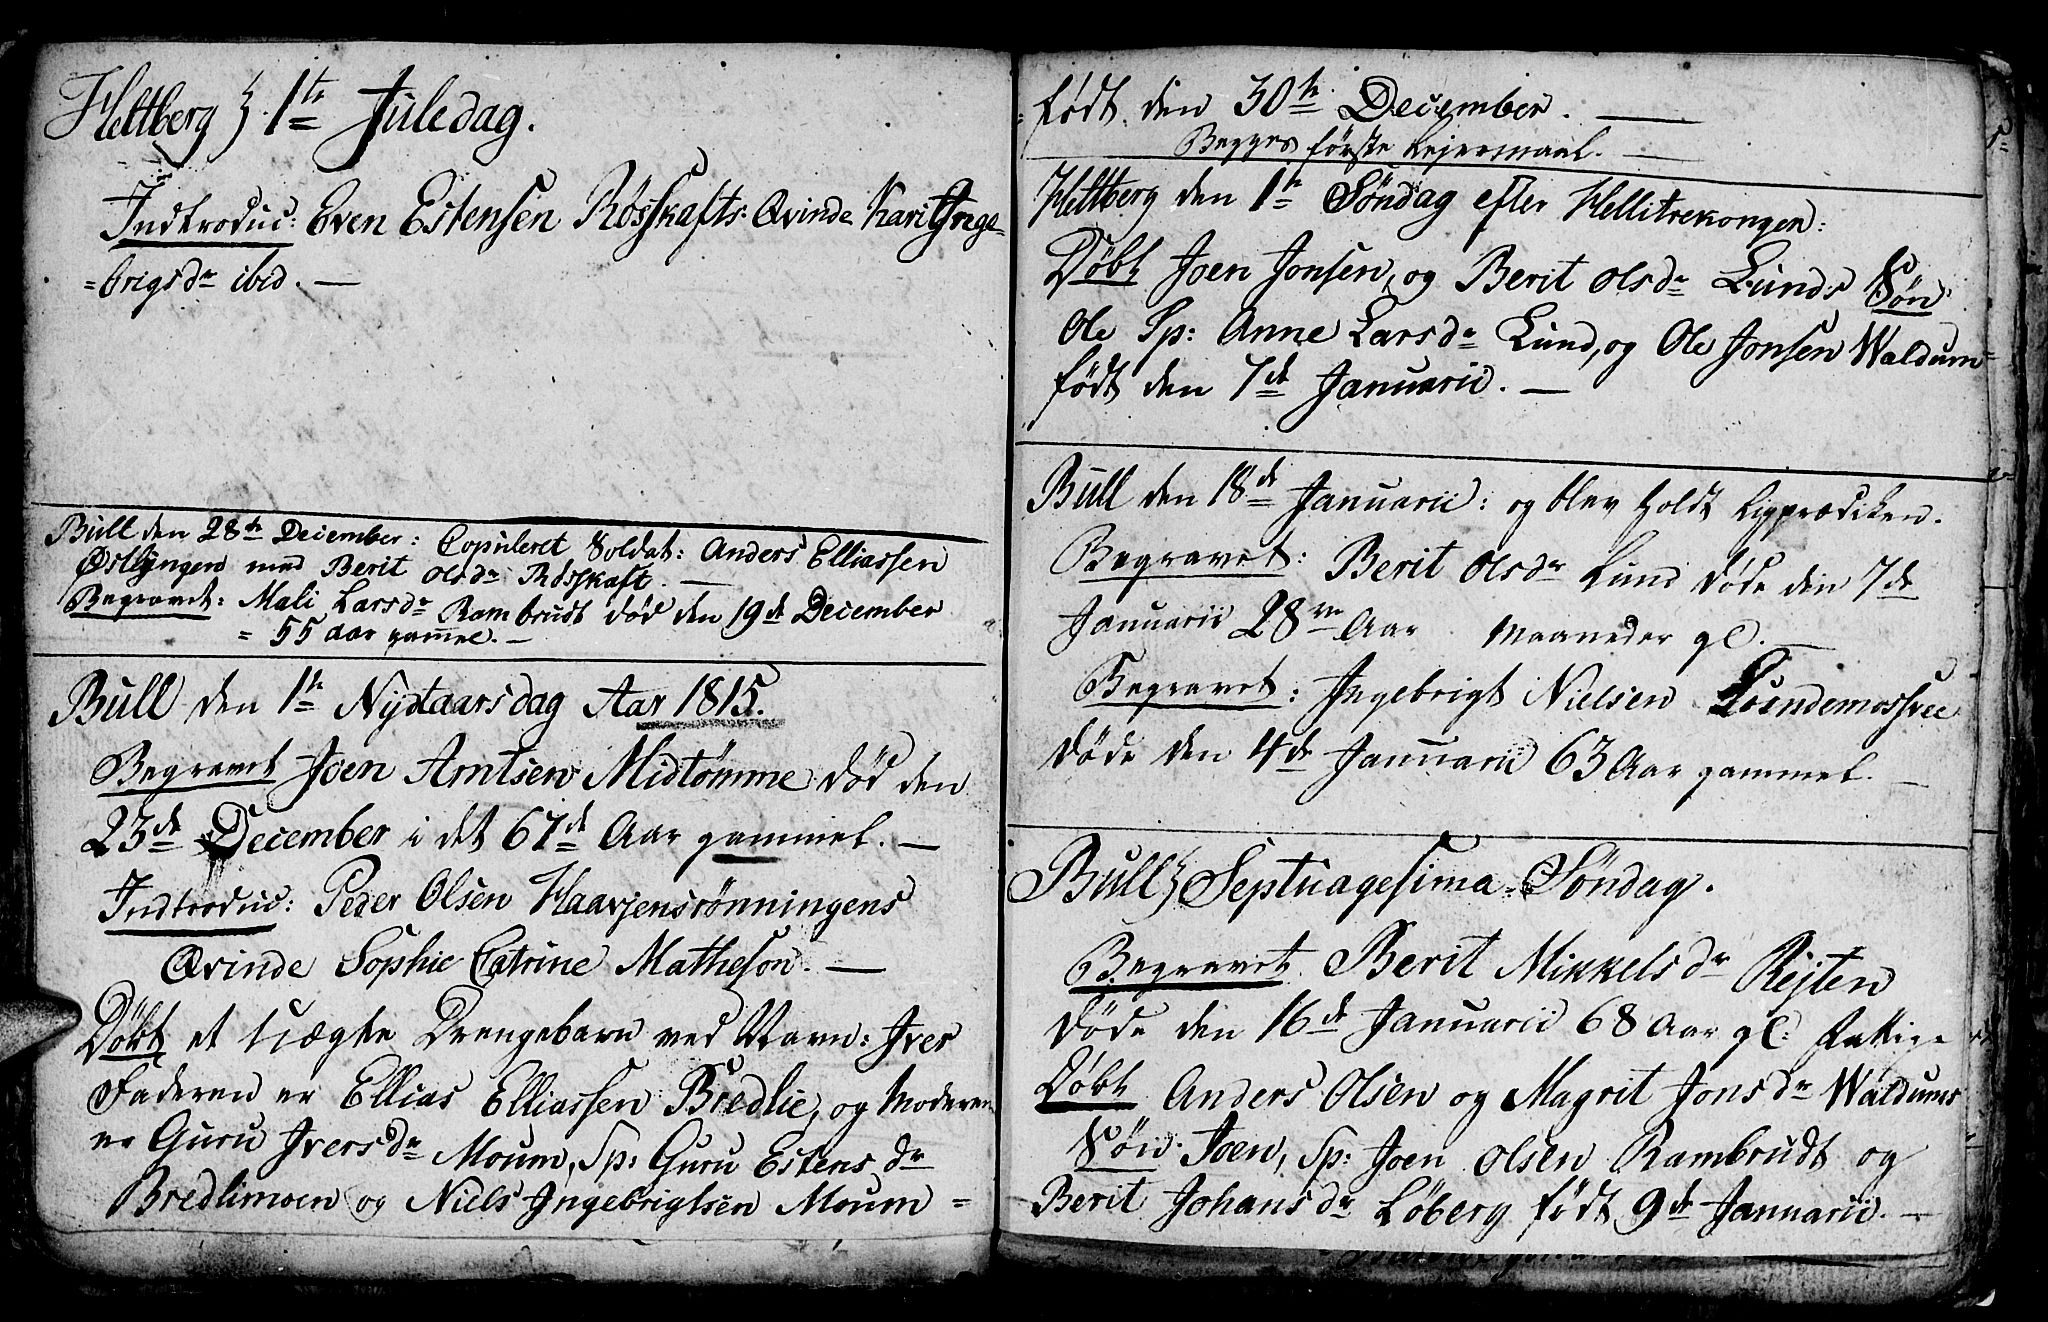 Heltberg 1te Juledag.
Indtroduc: Even Estensen Røsskafts Qvinde Kari Inge=
=brigsdr ibid. —
Bull den 28de December: Copuleret Soldat: Anders Elliassen
Østlyngen med Berit Olsdr Røsskaft. —
Begravet: Mali Larsdr Rambrudt død den 19de December
= 55 aar gammel. —
Bull den 1te Nydtaarsdag Aar 1815.
Begravet Joen Arntsen Midtømme død den
23de December i det 67de Aar gammel. —
Indtroduc: Peder Olsen Haarjensrønningens
Qvinde Sophie Catrine Matheson. —
Døbt et Uægte Drengebarn ved Navn: Iver
Faderen er Ellias Elliassen Bredlie, og Moderen
er Guru Iversdr Moum, Sp: Guru Estensdr
Bredlimoen og Niels Ingebrigtsen Moum =
= født den 30te December. —
Begges første Lejermaal. —
Heltberg den 1te Søndag efter Hellitrekongen:
Døbt Joen Jonsen, og Berit Olsdr Lunds Søn
Ole Sp: Anne Larsdr Lund, og Ole Jonsen Waldum
født den 7de Januarii. —
Bull den 18de Januarii: og blev holdt Ligprædiken.
Begravet: Berit Olsdr Lund døde den 7de
Januarii 28 Aar Maaneder gl. —
Begravet: Ingebrigt Nielsen Lundemossvee
døde den 4de Januarii 63 Aar gammel. —
Bull Septuagesima Søndag.
Begravet Berit Mikkelsdr Rejten
døde den 16de Januarii 68 Aar gl: Fattige
Døbt Anders Olsen og Magrit Jonsdr Waldums
Søn Joen, Sp: Joen Olsen Rambrudt og
Berit Johansdr Løberg født 9de Januarii. —